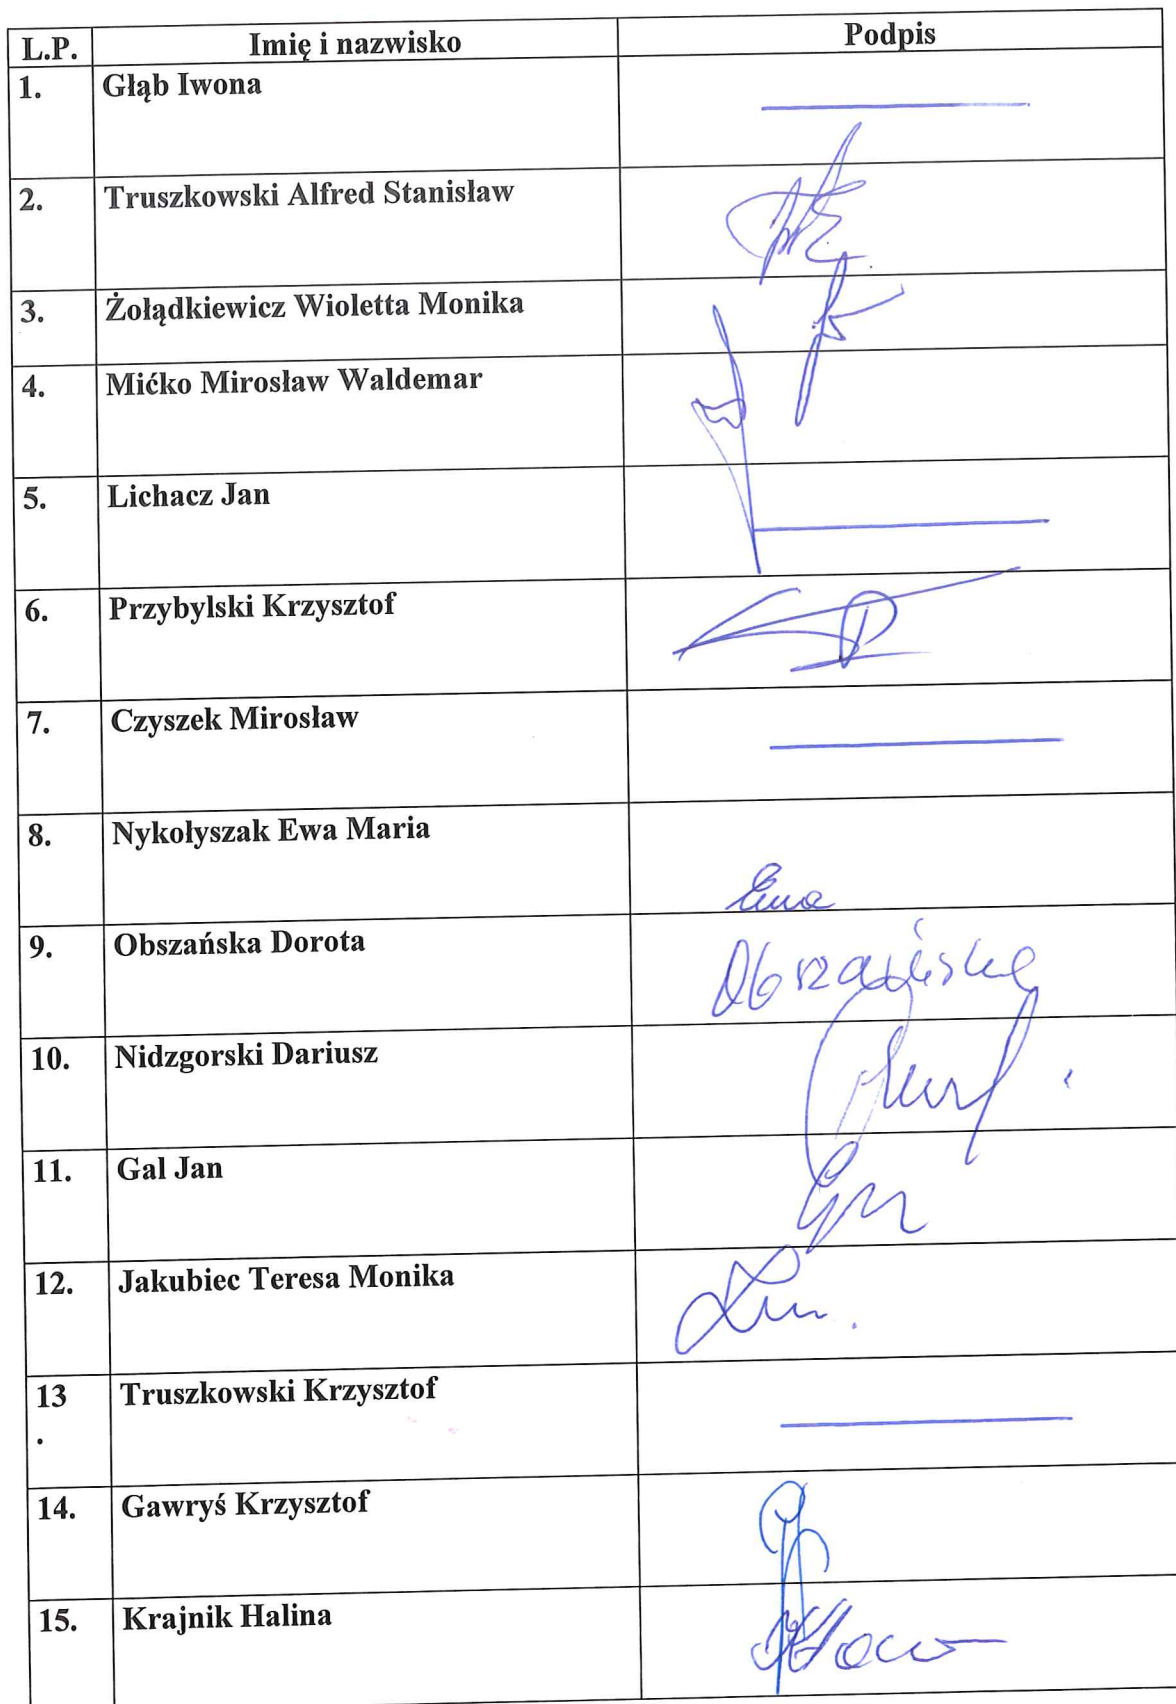 L.P. Imię i nazwisko Podpis
1. Głąb Iwona
2. Truszkowski Alfred Stanisław
3. Żołądkiewicz Wioletta Monika
4. Mićko Mirosław Waldemar
5. Lichacz Jan
6. Przybylski Krzysztof
7. Czyszek Mirosław
8. Nykołyszak Ewa Maria
Ewa
9. Obszańska Dorota
Obszańska
10. Nidzgorski Dariusz
11. Gal Jan
12. Jakubiec Teresa Monika
13 Truszkowski Krzysztof
.
14. Gawryś Krzysztof
15. Krajnik Halina